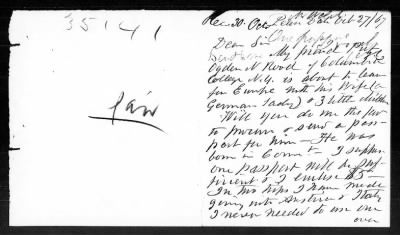 35141
Paid
Rec 30. Oct
Oct 27/67
Dear Sir One passport
My friend Prof
Ogden N. Rood of Columbia
College N.Y. is about to leave
for Europe with his wife (a
German lady) & 3 little children
Will you do me the favor
to procure & send a pass-
port for him — He was
born in Conn — I suppose
one passport will be suf-
ficient & I enclose $5—
In his trips I have made
going into Austria & Italy
I never needed to use one
over